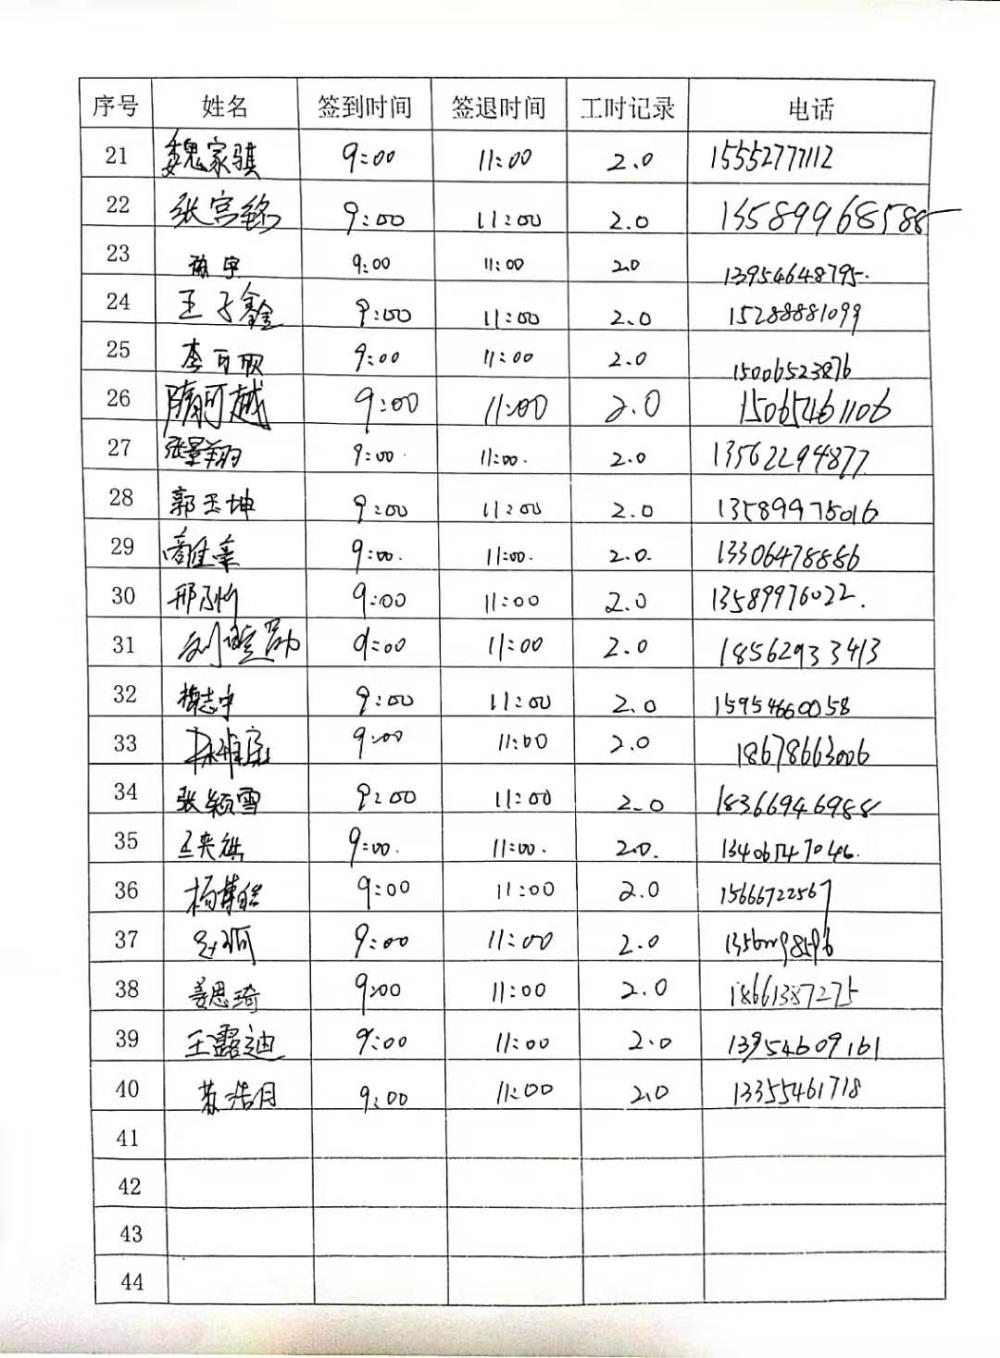 序号 姓名 签到时间 签退时间 工时记录 电话
21 魏家骐 9:00 11:00 2.0 15552777112
22 张宫铭 9:00 11:00 2.0 13589968588
23 9:00 11:00 2.0 13954648795.
24 王子鑫 9:00 11:00 2.0 15288881099
25 李可欣 9:00 11:00 2.0 15006523876
26 隋可越 9:00 11:00 2.0 15065461106
27 张景翔 9:00. 11:00. 2.0 13562294877
28 郭玉坤 9:00 11:00 2.0 13589975016
29 商佳幸 9:00. 11:00. 2.0. 13306478886
30 邢乃 9:00 11:00 2.0 13589976022.
31 刘 9:00 11:00 2.0 18562933413
32 志宇 9:00 11:00 2.0 15954660058
33 9:00 11:00 2.0 18678663006
34 张颖雪 9:00 11:00 2.0 18366946988
35 9:00. 11:00. 2.0. 13406547046.
36 杨博 9:00 11:00 2.0 15666722567
37 9:00 11:00 2.0
38 姜思琦 9:00 11:00 2.0 18661387275
39 王露迪 9:00 11:00 2.0 13954609161
40 苏浩月 9:00 11:00 2.0 13355461718
41
42
43
44